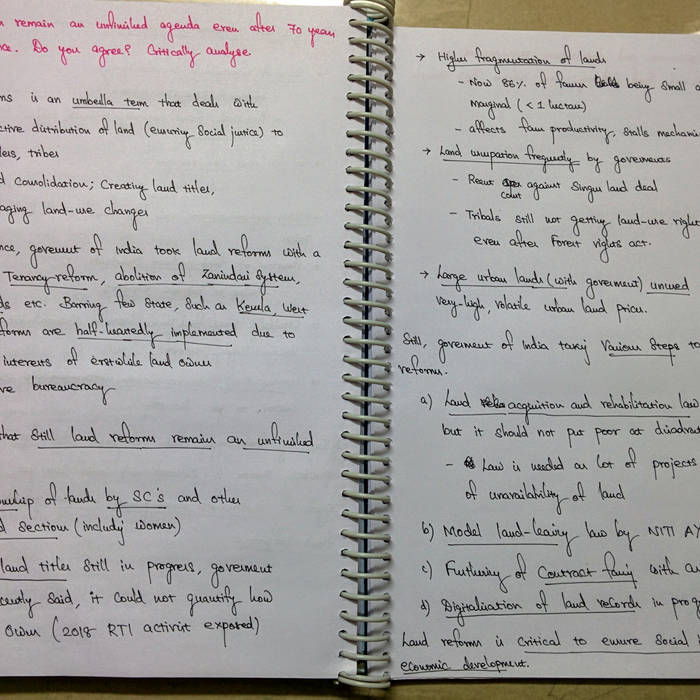 remain an unfinished agenda even after 70 years
ce. Do you agree? Critically analyse
ns is an umbella term that deals with
tive distribution of land (ensuring Social justice) to
lers, tribes
d consolidation; Creating land titles,
aging land-use changes
nce, goverment of India took land reforms with a
Tenancy-reform, abolition of Zamindari System,
ds etc. Barring few State, such as Kerela, West
forms are half-heartedly implemented due to
interests of erstwhile land owner
ve bureaucracy
that still land reforms remain an unfinished
ership of lands by SC's and other
d section (includij women)
land titles still in progress, goverment
cently said, it could not quantify how
owns (2018 RTI activist exposed)
→ Higher fragmentation of lands
- Now 86% of farms being small a
marginal (<1 hectare)
- affects farm productivity, stalls mechani
→ Land usurpation frequently by goverments
- Recent court against Singur land deal
- Tribals still not getting land-use right
even after Forest rights act.
→ Large urban lands (with goverment) unused
very-high, volatile urban land prices.
Still, goverment of India takij various steps to
reforms.
a) Land acquition and rehabilitation law
but it should not put poor at disadvan
- Law is needed as lot of projects
of unavailability of land
b) Model land-leasing law by NITI AY
c) Furthering of Contract farmij with a
d) Digitalisation of land records in prog
Land reforms is critical to ensure Social
economic development.